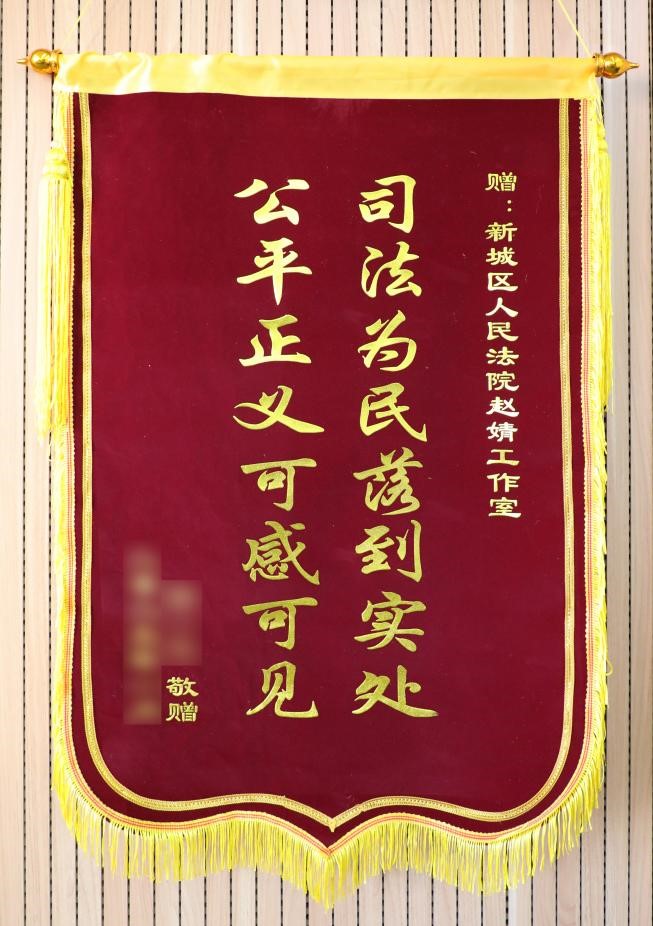 赠：新城区人民法院赵婧工作室
司法为民落到实处
公平正义可感可见
敬赠